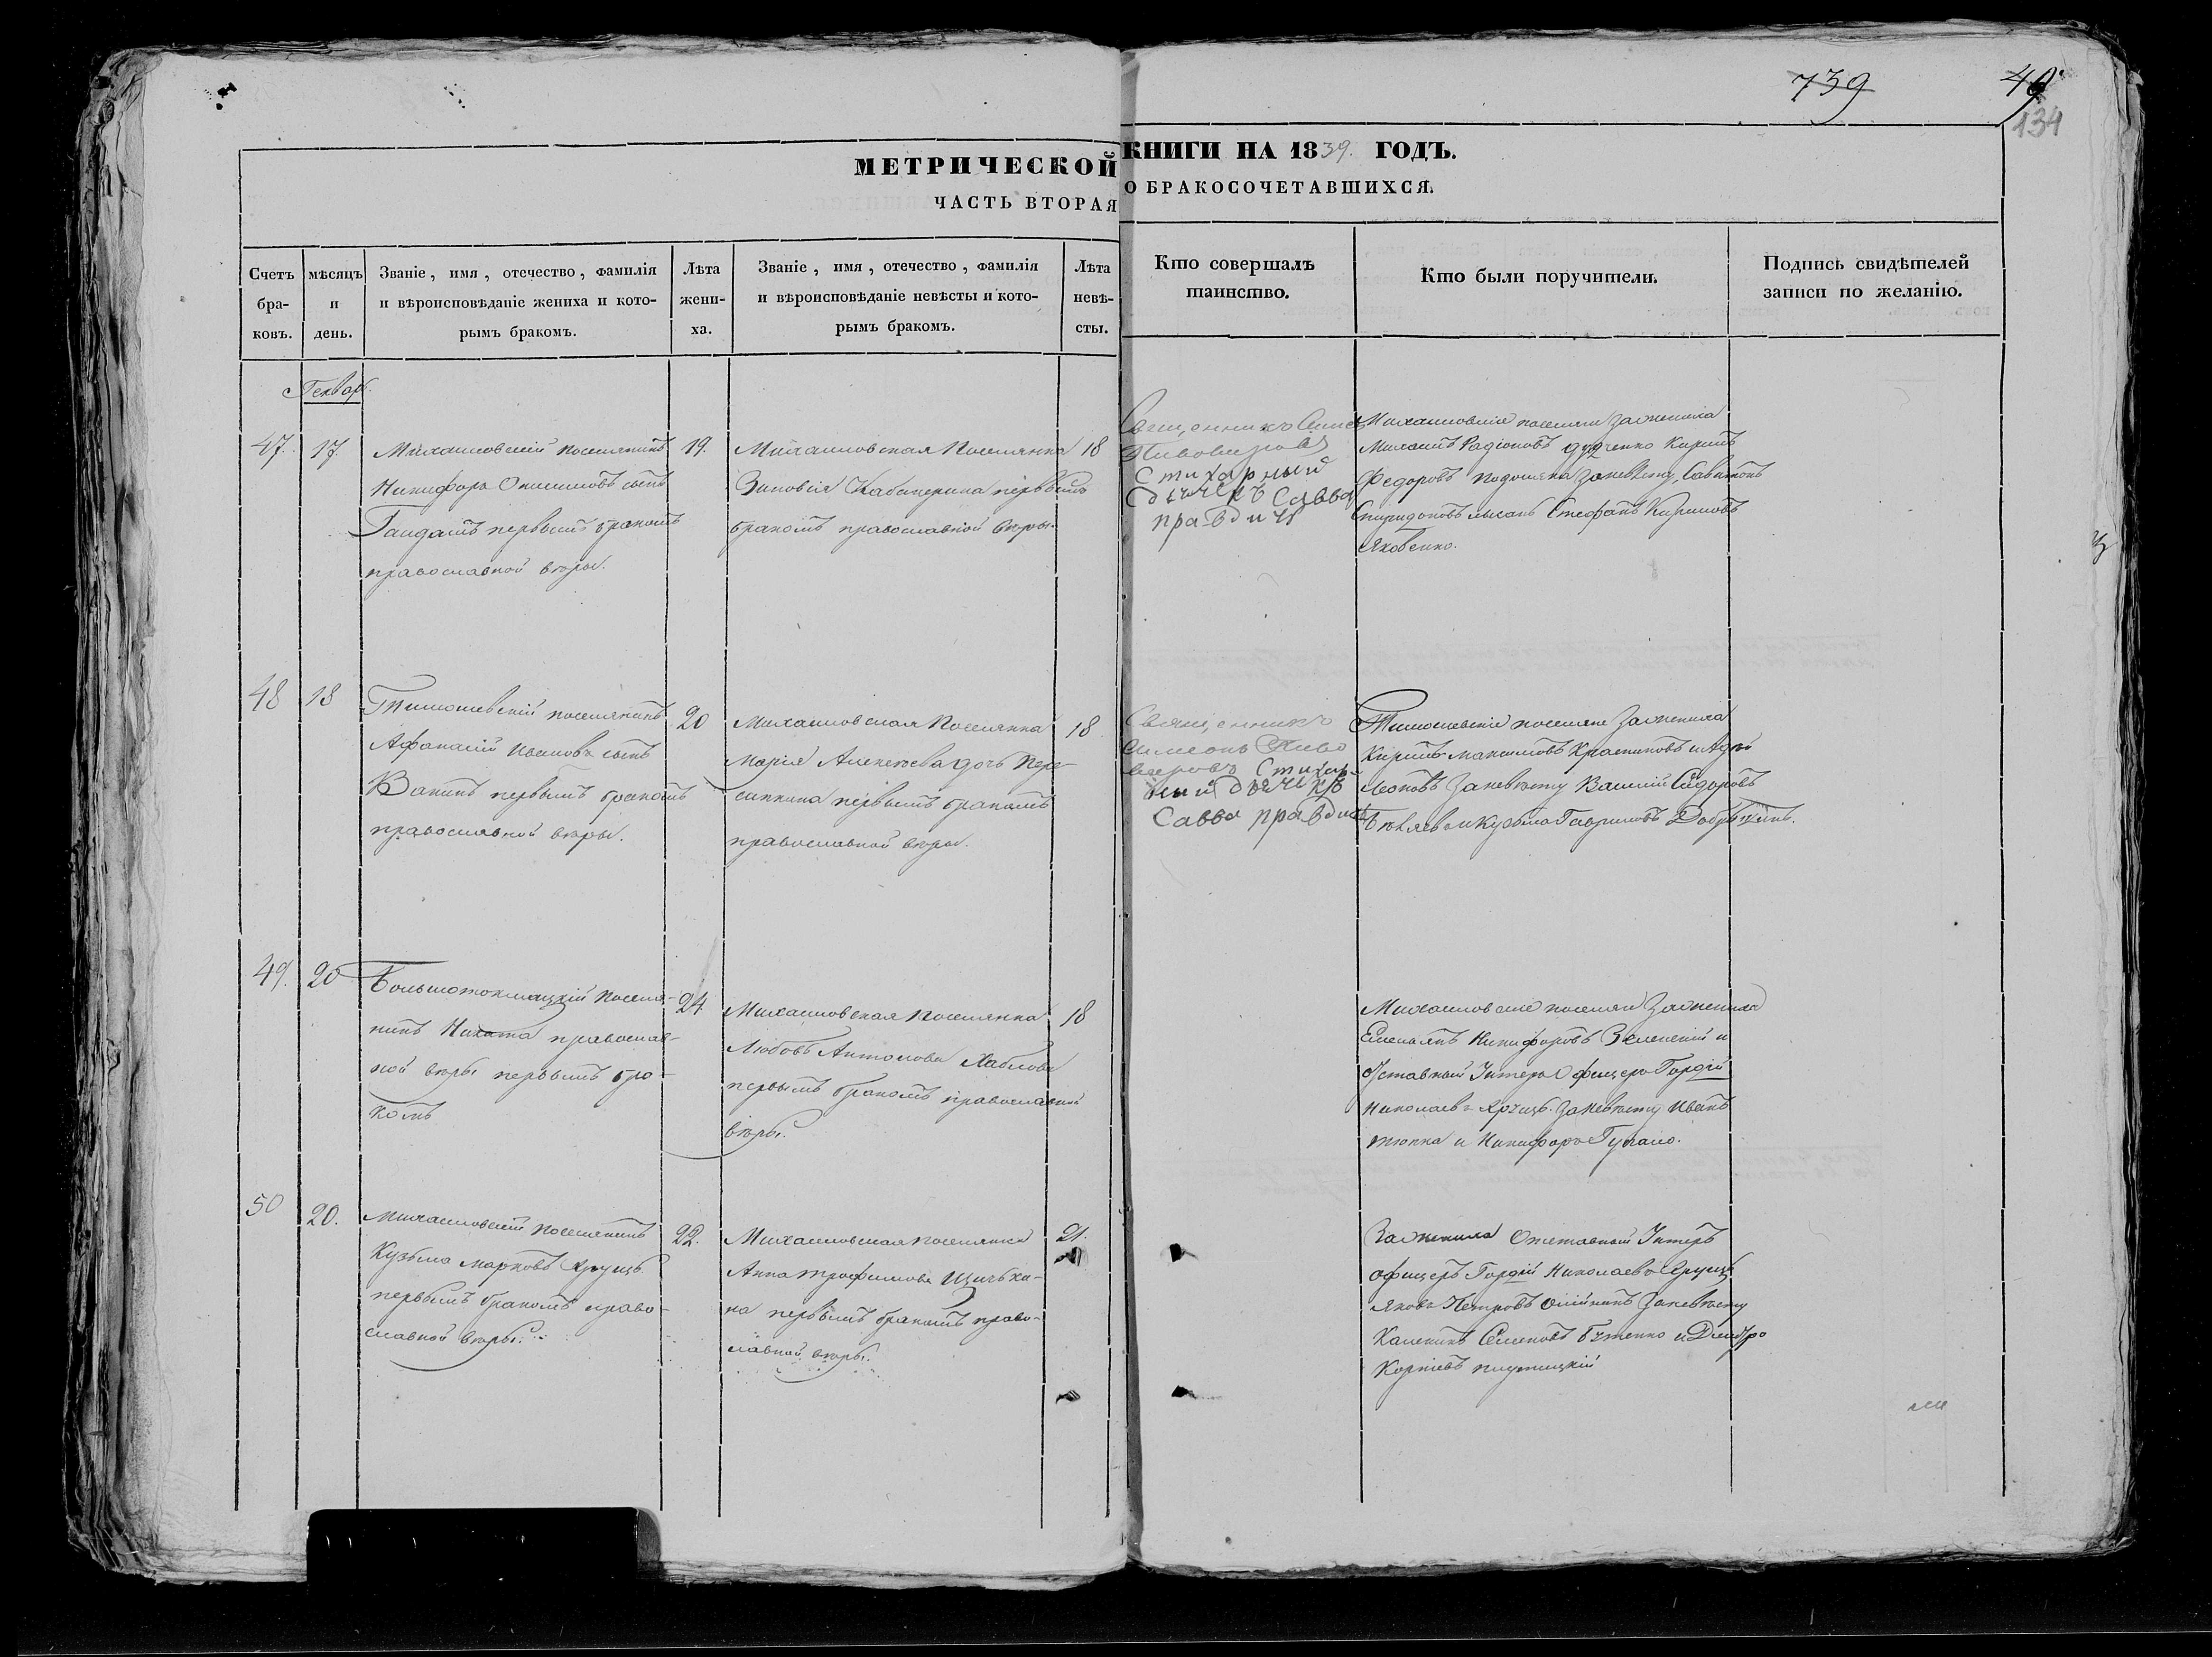 739 49
134
МЕТРИЧЕСКОЙ КНИГИ НА 1839. ГОДЪ.
ЧАСТЬ ВТОРАЯ О БРАКОСОЧЕТАВШИХСЯ.
Счетъ бра- ковъ.
мѣсяцъ и день.
Званіе, имя, отечество, фамилія
и вѣроисповѣданіе жениха и кото-
рымъ бракомъ.
Лѣта жени- ха.
Званіе, имя, отечество, фамилія
и вѣроисповѣданіе невѣсты и кото-
рымъ бракомъ.
Лѣта невѣ- сты.
Кто совершалъ
таинство.
Кто были поручители.
Подпись свидѣтелей
записи по желанію.
Генвар.
47. 17.
Михаиловскій поселянинъ
Никифоръ Онисимовъ сынъ
Гайдашъ первымъ бракомъ
православной вѣры.
19.
Михаиловская Поселянка
Зиновія первымъ
бракомъ православной вѣры.
18
Священникъ
Пивоваровъ
Стихарный
дьячекъ Савва
правдичъ
Михаиловскіе поселяне за жениха
Михаилъ Радіоновъ дудченко Кирилъ
Федоровъ за невѣсту,
Спиридоновъ лысакъ Стефанъ Кириловъ
Яковенко.
48 18
Тимошевскій поселянинъ
Афанасій Ивановъ сынъ
Ванинъ первымъ бракомъ
православной вѣры.
20
Михаиловская Поселянка
Марія Алексѣева дочь Пере-
первымъ бракомъ
православной вѣры.
18
Священникъ
Симеонъ Пиво
варовъ Стихар-
ный дьячекъ
Савва правдичъ
Тимошевскіе поселяне за жениха
Кирилъ Максимовъ
за невѣсту Василій Сидоровъ
Бѣляевъ и Кузьма Гавриловъ
49. 20
Большотокмацкій поселя-
нинъ православ-
ной вѣры первымъ бра-
комъ
24.
Михаиловская Поселянка
Любовь Антонова
первымъ бракомъ православной
вѣры.
18
Михаиловскіе поселяне за жениха
Емельянъ Никифоровъ Зеленскій и
отставный Унтеръ Офицеръ Гордій
Николаевъ за невѣсту Иванъ
и Никифоръ
50 20.
Михаиловскій поселянинъ
Кузьма Марковъ
первымъ бракомъ право-
славной вѣры.
22.
Михаиловская поселянка
Анна Трофимова
на первымъ бракомъ право-
славной вѣры.
21.
За жениха Отставный Унтеръ
офицеръ Гордій Николаевъ
Яковъ Петровъ Олійникъ за невѣсту
Семеновъ Бутенко и Дмитро
Корніевъ